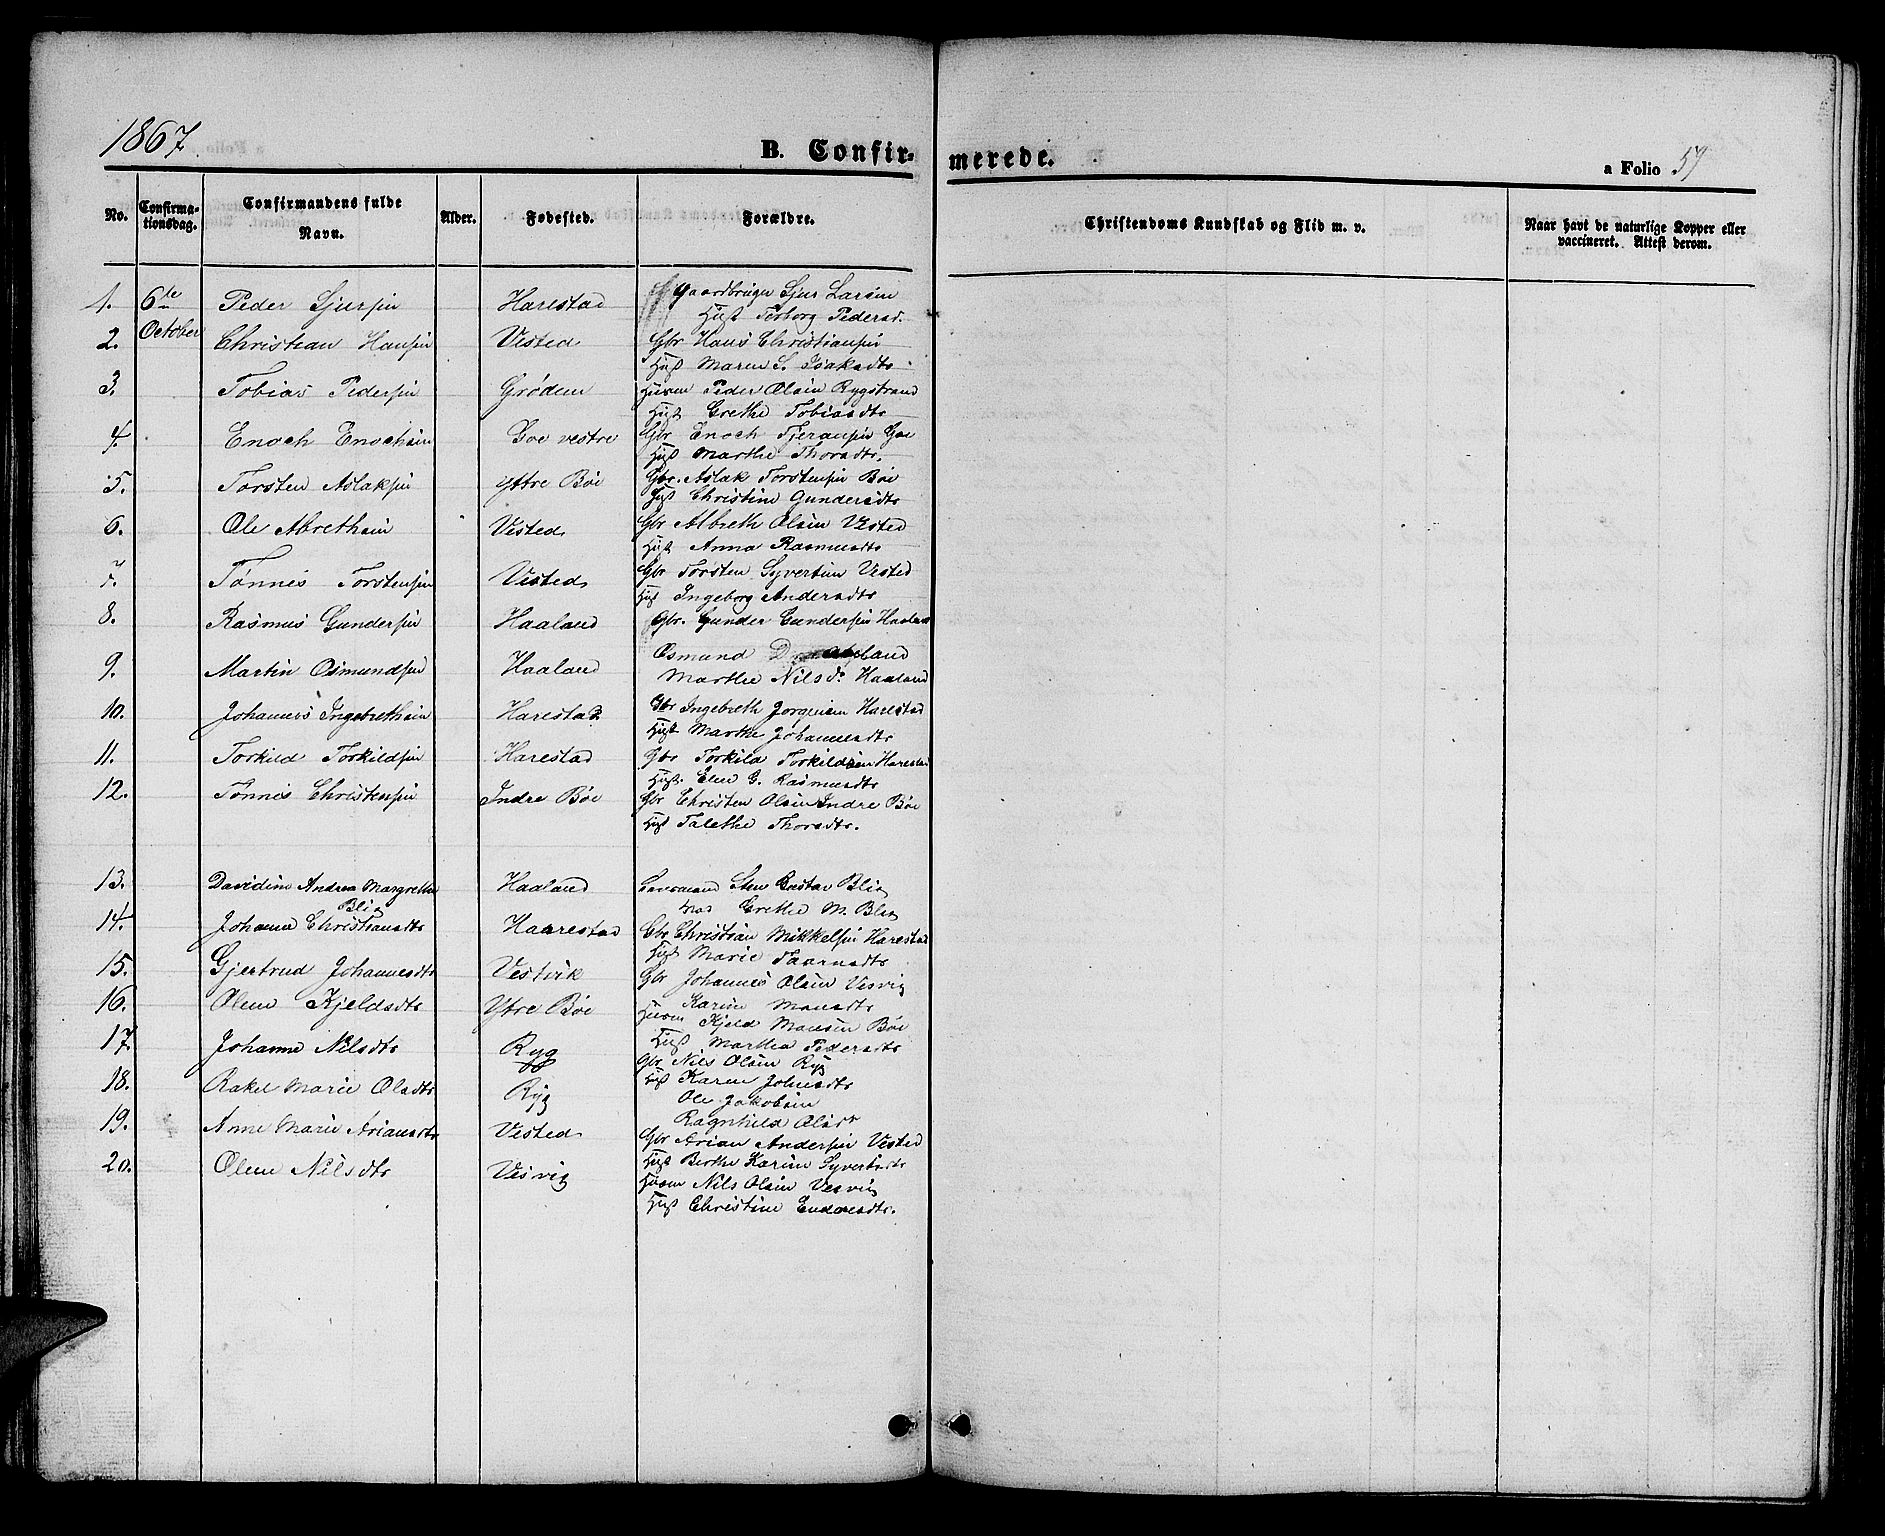 1867.
B. Confir-
merede.
a Folio 57
No.
Confirma-
tionsdag.
Confirmandens fulde
Navn.
Alder.
Fødested.
Forældre.
Christendoms Kundskab og Flid m. v.
Naar havt de naturlige Kopper eller
vaccineret. Attest derom.
1. 6te Peder Sjursen Harestad Gaardbruger Sjur Larsen
Hust Torborg Pedersd.
2. October Christian Hansen Visted Gbr Hans Christiansen
Hust Maren S. Isaksdtr
3. Tobias Pedersen Grødem Husm Peder Olsen Rygstrand
Hust Grethe Tobiasdtr
4. Enoch Enochsen Goe vestre Gbr Enoch Tjeransen Goe
Hust Marthe Thorsdtr.
5. Torsten Aslaksen Yttre Bøe Gbr. Aslak Torstensen Bøe
Hust Christine Gundersdtr
6. Ole Abrethsen Visted Gbr Albreth Olsen Visted
Hust Anna Rasmusdtr
7. Tønnes Torstensen Visted Gbr Torsten Syvertsen Visted
Hust Ingeborg Andersdtr
8. Rasmus Gundersen Haaland Gbr. Gunder Gundersen Haaland
9. Martin Osmundsen Haaland Osmund
Marthe Nilsd. Haaland
10. Johannes Ingebrethsen Harestad Gbr Ingebreth Jørgensen Harestad
Hust Marthe Johannesdtr
11. Torkild Torkildsen Harestad Gbr Torkild Torkildsen Harestad
Hust. Elen G. Rasmusdtr
12. Tønnes Christensen Indre Bøe Gbr Christen Olsen Indre Bøe
Hust Talethe Thorsdtr.
13. Davidine Andrea Margrethe Haaland Lensmand Sten Gustav Blix
Blix Mad Grethe M. Blix
14. Johanne Christiansdtr Haarestad Gbr Christian Mikkelsen Harestad
Hust Marie Taarnsdtr
15. Gjertrud Johannesdtr Vestvik Gbr Johannes Olsen Vesvig
Karine Monsdtr
16. Olene Kjeldsdtr Ytre Bøe Husm Kjeld Monsen Bøe
Hust Martha Pedersdtr
17. Johanne Nilsdtr Ryg Gbr Nils Olsen Ryg
Hust Karen Johnsdtr
18. Rakel Marie Olsdtr Ryg Ole Jakobsen
Ragnhild Olsdtr
19. Anne Marie Ariansdtr Visted Gbr Arian Andersen Visted
Hust Berthe Karine Syvertsdtr
20. Olene Nilsdtr Vesvig Husm Nils Olsen Vesvig
Hust Christine Endresdtr.